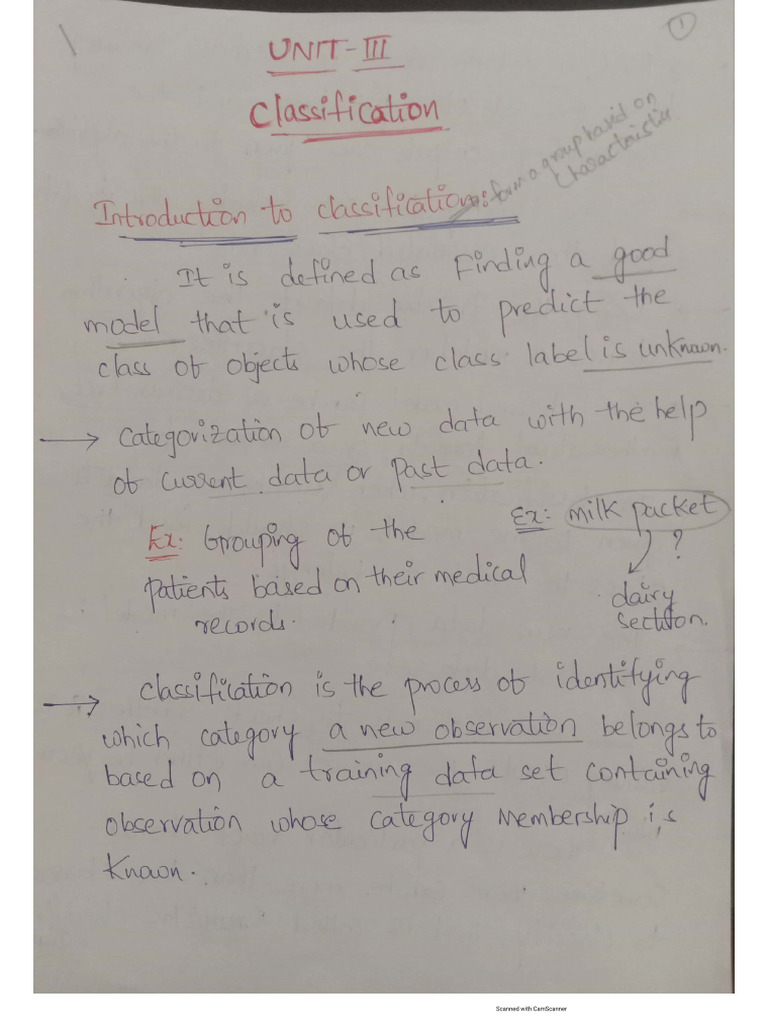 1
UNIT-III
Classification
form a group based on
characteristics
Introduction to classification:
It is defined as Finding a good
model that is used to predict the
class of objects whose class label is unknown.
→ Categorization of new data with the help
of current data or past data.
Ex: Grouping of the
patients based on their medical
records.
Ex: milk packet
?
dairy
section.
→ Classification is the process of identifying
which category a new observation belongs to
based on a training data set containing
observation whose category membership is
known.
Scanned with CamScanner